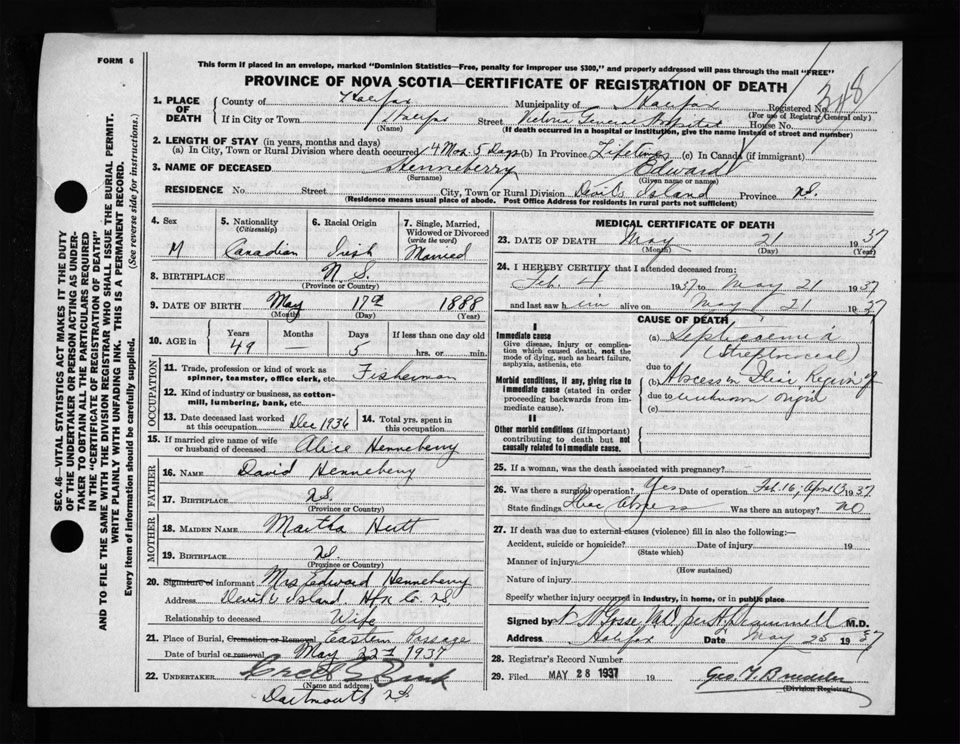 FORM 6
This form if placed in an envelope, marked "Dominion Statistics—Free, penalty for improper use $300," and properly addressed will pass through the mail "FREE"
PROVINCE OF NOVA SCOTIA—CERTIFICATE OF REGISTRATION OF DEATH
348
1. PLACE OF DEATH
County of Halifax Municipality of Halifax Registered No.
(For use of Registrar General only)
If in City or Town Halifax Street Victoria General Hospital House No.
(Name) (If death occurred in a hospital or institution, give the name instead of street and number)
2. LENGTH OF STAY (in years, months and days)
(a) In City, Town or Rural Division where death occurred 4 Mos 5 Days (b) In Province Lifetime (c) In Canada (if immigrant)
3. NAME OF DECEASED Henneberry Edward
(Surname) (Given name or names)
RESIDENCE No. Street City, Town or Rural Division Devils Island Province N.S.
(Residence means usual place of abode. Post Office Address for residents in rural parts not sufficient)
4. Sex M
5. Nationality (Citizenship) Canadian
6. Racial Origin Irish
7. Single, Married, Widowed or Divorced (write the word) Married
8. BIRTHPLACE N S.
(Province or Country)
9. DATE OF BIRTH May 17th 1888
(Month) (Day) (Year)
10. AGE in Years Months Days If less than one day old
49 — 5 hrs. or min.
OCCUPATION
11. Trade, profession or kind of work as spinner, teamster, office clerk, etc. Fisherman
12. Kind of industry or business, as cotton-mill, lumbering, bank, etc.
13. Date deceased last worked at this occupation Dec 1936
14. Total yrs. spent in this occupation
15. If married give name of wife or husband of deceased Alice Henneberry
FATHER
16. NAME David Henneberry
17. BIRTHPLACE N.S.
(Province or Country)
MOTHER
18. MAIDEN NAME Martha Hutt
19. BIRTHPLACE N.S.
(Province or Country)
20. Signature of informant Mrs Edward Henneberry
Address Devil's Island. Hfx Co. N.S.
Relationship to deceased Wife
21. Place of Burial, Cremation or Removal Eastern Passage
Date of burial or removal May 22nd 1937
22. UNDERTAKER
(Name and address)
Dartmouth N.S.
MEDICAL CERTIFICATE OF DEATH
23. DATE OF DEATH May 21 1937
(Month) (Day) (Year)
24. I HEREBY CERTIFY that I attended deceased from:
Feb. 4 1937 to May 21 1937
and last saw him alive on May 21 1937
CAUSE OF DEATH
I
Immediate cause
Give disease, injury or complication which caused death, not the mode of dying, such as heart failure, asphyxia, asthenia, etc
(a) Septicaemia
(Streptococcal)
due to
Morbid conditions, if any, giving rise to immediate cause (stated in order proceeding backwards from immediate cause).
(b) Abscess in Iliac Region of
due to unknown origin
(c)
II
Other morbid conditions (if important) contributing to death but not causally related to immediate cause.
25. If a woman, was the death associated with pregnancy?
26. Was there a surgical operation? Yes Date of operation Feb. 16, April 13 1937
State findings Iliac Abscess Was there an autopsy? NO
27. If death was due to external causes (violence) fill in also the following:—
Accident, suicide or homicide? Date of injury 19
(State which)
Manner of injury
(How sustained)
Nature of injury
Specify whether injury occurred in Industry, in home, or in public place
Signed by Gosse MD per M.D.
Address Halifax Date May 25 1937
28. Registrar's Record Number
29. Filed MAY 28 1937 19
(Division Registrar)
SEC. 46—VITAL STATISTICS ACT MAKES IT THE DUTY
OF THE UNDERTAKER OR PERSON ACTING AS UNDER-
TAKER TO OBTAIN ALL THE PARTICULARS REQUIRED
IN THE "CERTIFICATE OF REGISTRATION OF DEATH"
AND TO FILE THE SAME WITH THE DIVISION REGISTRAR WHO SHALL ISSUE THE BURIAL PERMIT.
WRITE PLAINLY WITH UNFADING INK. THIS IS A PERMANENT RECORD.
Every item of information should be carefully supplied. (See reverse side for instructions.)